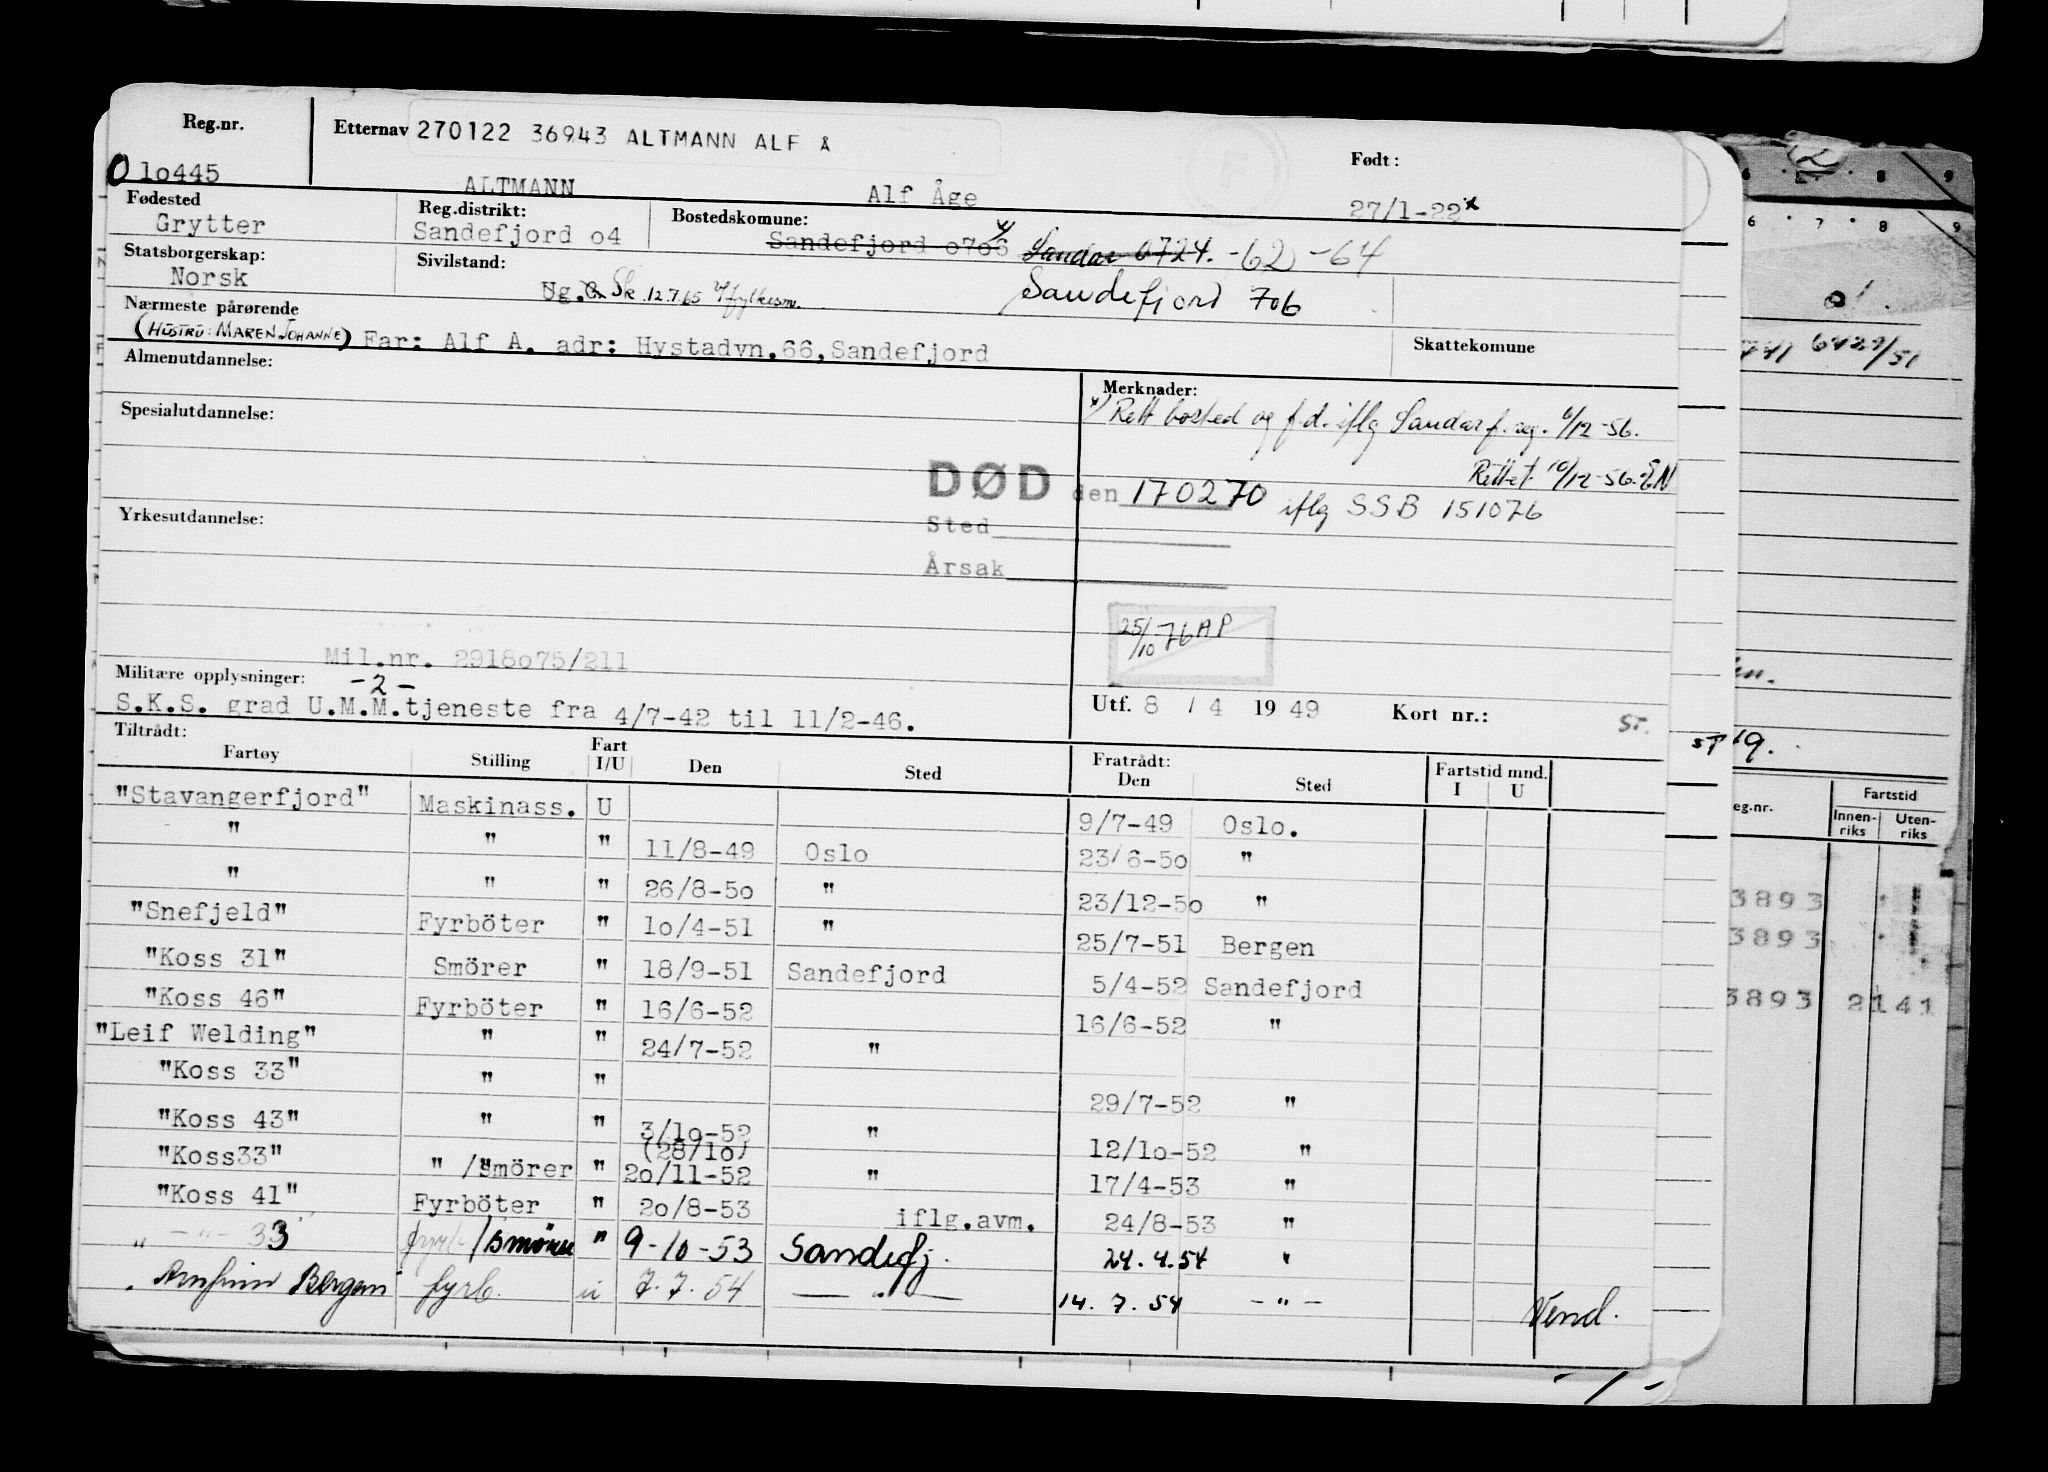 Reg.nr. Etternav 270122 36943 ALTMANN ALF Å Født :
0 1o445 ALTMANN Alf Åge 27/1-22 x
Fødested Reg.distrikt: Bostedskomune:
Grytter Sandefjord o4 Sandefjord o7o6 x) Sandar 0724. -62 -64
Statsborgerskap: Sivilstand:
Norsk Ug. G. Sk 12.7.65 Sandefjord 706
Nærmeste pårørende
(HUSTRU: MAREN JOHANNE) Far: Alf A. adr: Hystadvn.66, Sandefjord Skattekomune
Almenutdannelse: Merknader:
x) Rett bosted og f.d. iflg Sandar f. reg. 6/12-56.
Spesialutdannelse:
Rettet 10/12-56. EN
DØD den 170270 iflg SSB 151076
Yrkesutdannelse: Sted
Årsak
25/10 76 AP
Mil.nr. 2918o75/211
Militære opplysninger: -2-
S.K.S. grad U.M.M.tjeneste fra 4/7-42 til 11/2-46. Utf. 8 / 4 19 49 Kort nr.: ST.
Tiltrådt: Fratrådt:
Fartøy Stilling Fart I/U Den Sted Den Sted Fartstid mnd. I U
"Stavangerfjord" Maskinass. U 9/7-49 Oslo.
" " " 11/8-49 Oslo 23/6-5o "
" " " 26/8-5o " 23/12-5o "
"Snefjeld" Fyrböter " 1o/4-51 " 25/7-51 Bergen
"Koss 31" Smörer " 18/9-51 Sandefjord 5/4-52 Sandefjord
"Koss 46" Fyrböter " 16/6-52 16/6-52 "
"Leif Welding" " " 24/7-52 "
"Koss 33" " " 29/7-52 "
"Koss 43" " " 3/1o-52 " 12/1o-52 "
(28/1o)
"Koss33" " /Smörer " 2o/11-52 " 17/4-53 "
"Koss 41" Fyrböter " 2o/8-53 iflg.avm. 24/8-53 "
" -"- 33 fyrb/smörer " 9-10-53 Sandefj. 24.4.54 "
Arnfinn Bergan fyrb. u 7.7.54 — " — 14.7.54 - " -
Vend.
- 1 -
6 7 8 9
6 7 8 9
01.
741 6429/51
en.
ST 19.
eg.nr. Fartstid
Innen-riks Uten-riks
3893
3893
3893 2141